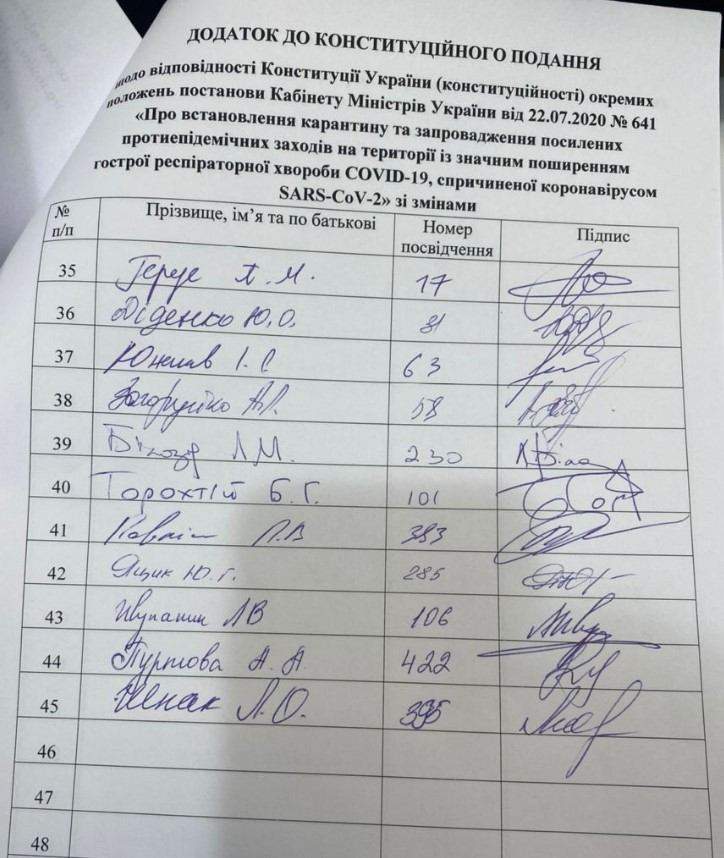 ДОДАТОК ДО КОНСТИТУЦІЙНОГО ПОДАННЯ
щодо відповідності Конституції України (конституційності) окремих
положень постанови Кабінету Міністрів України від 22.07.2020 № 641
«Про встановлення карантину та запровадження посилених
протиепідемічних заходів на території із значним поширенням
гострої респіраторної хвороби COVID-19, спричиненої коронавірусом
SARS-CoV-2» зі змінами
№ п/п Прізвище, ім’я та по батькові Номер посвідчення Підпис
35 Герус А. М. 17
36 Діденко Ю.О. 81
37 І. С 63
38 Загоруйко А.Л. 58
39 Білозір Л.М. 230
40 Торохтій Б. Г. 101
41 383
42 Ящик Ю. Г. 285
43 ЛВ 106
44 Пуртова А. А. 422
45 Шпак Л.О. 395
46
47
48